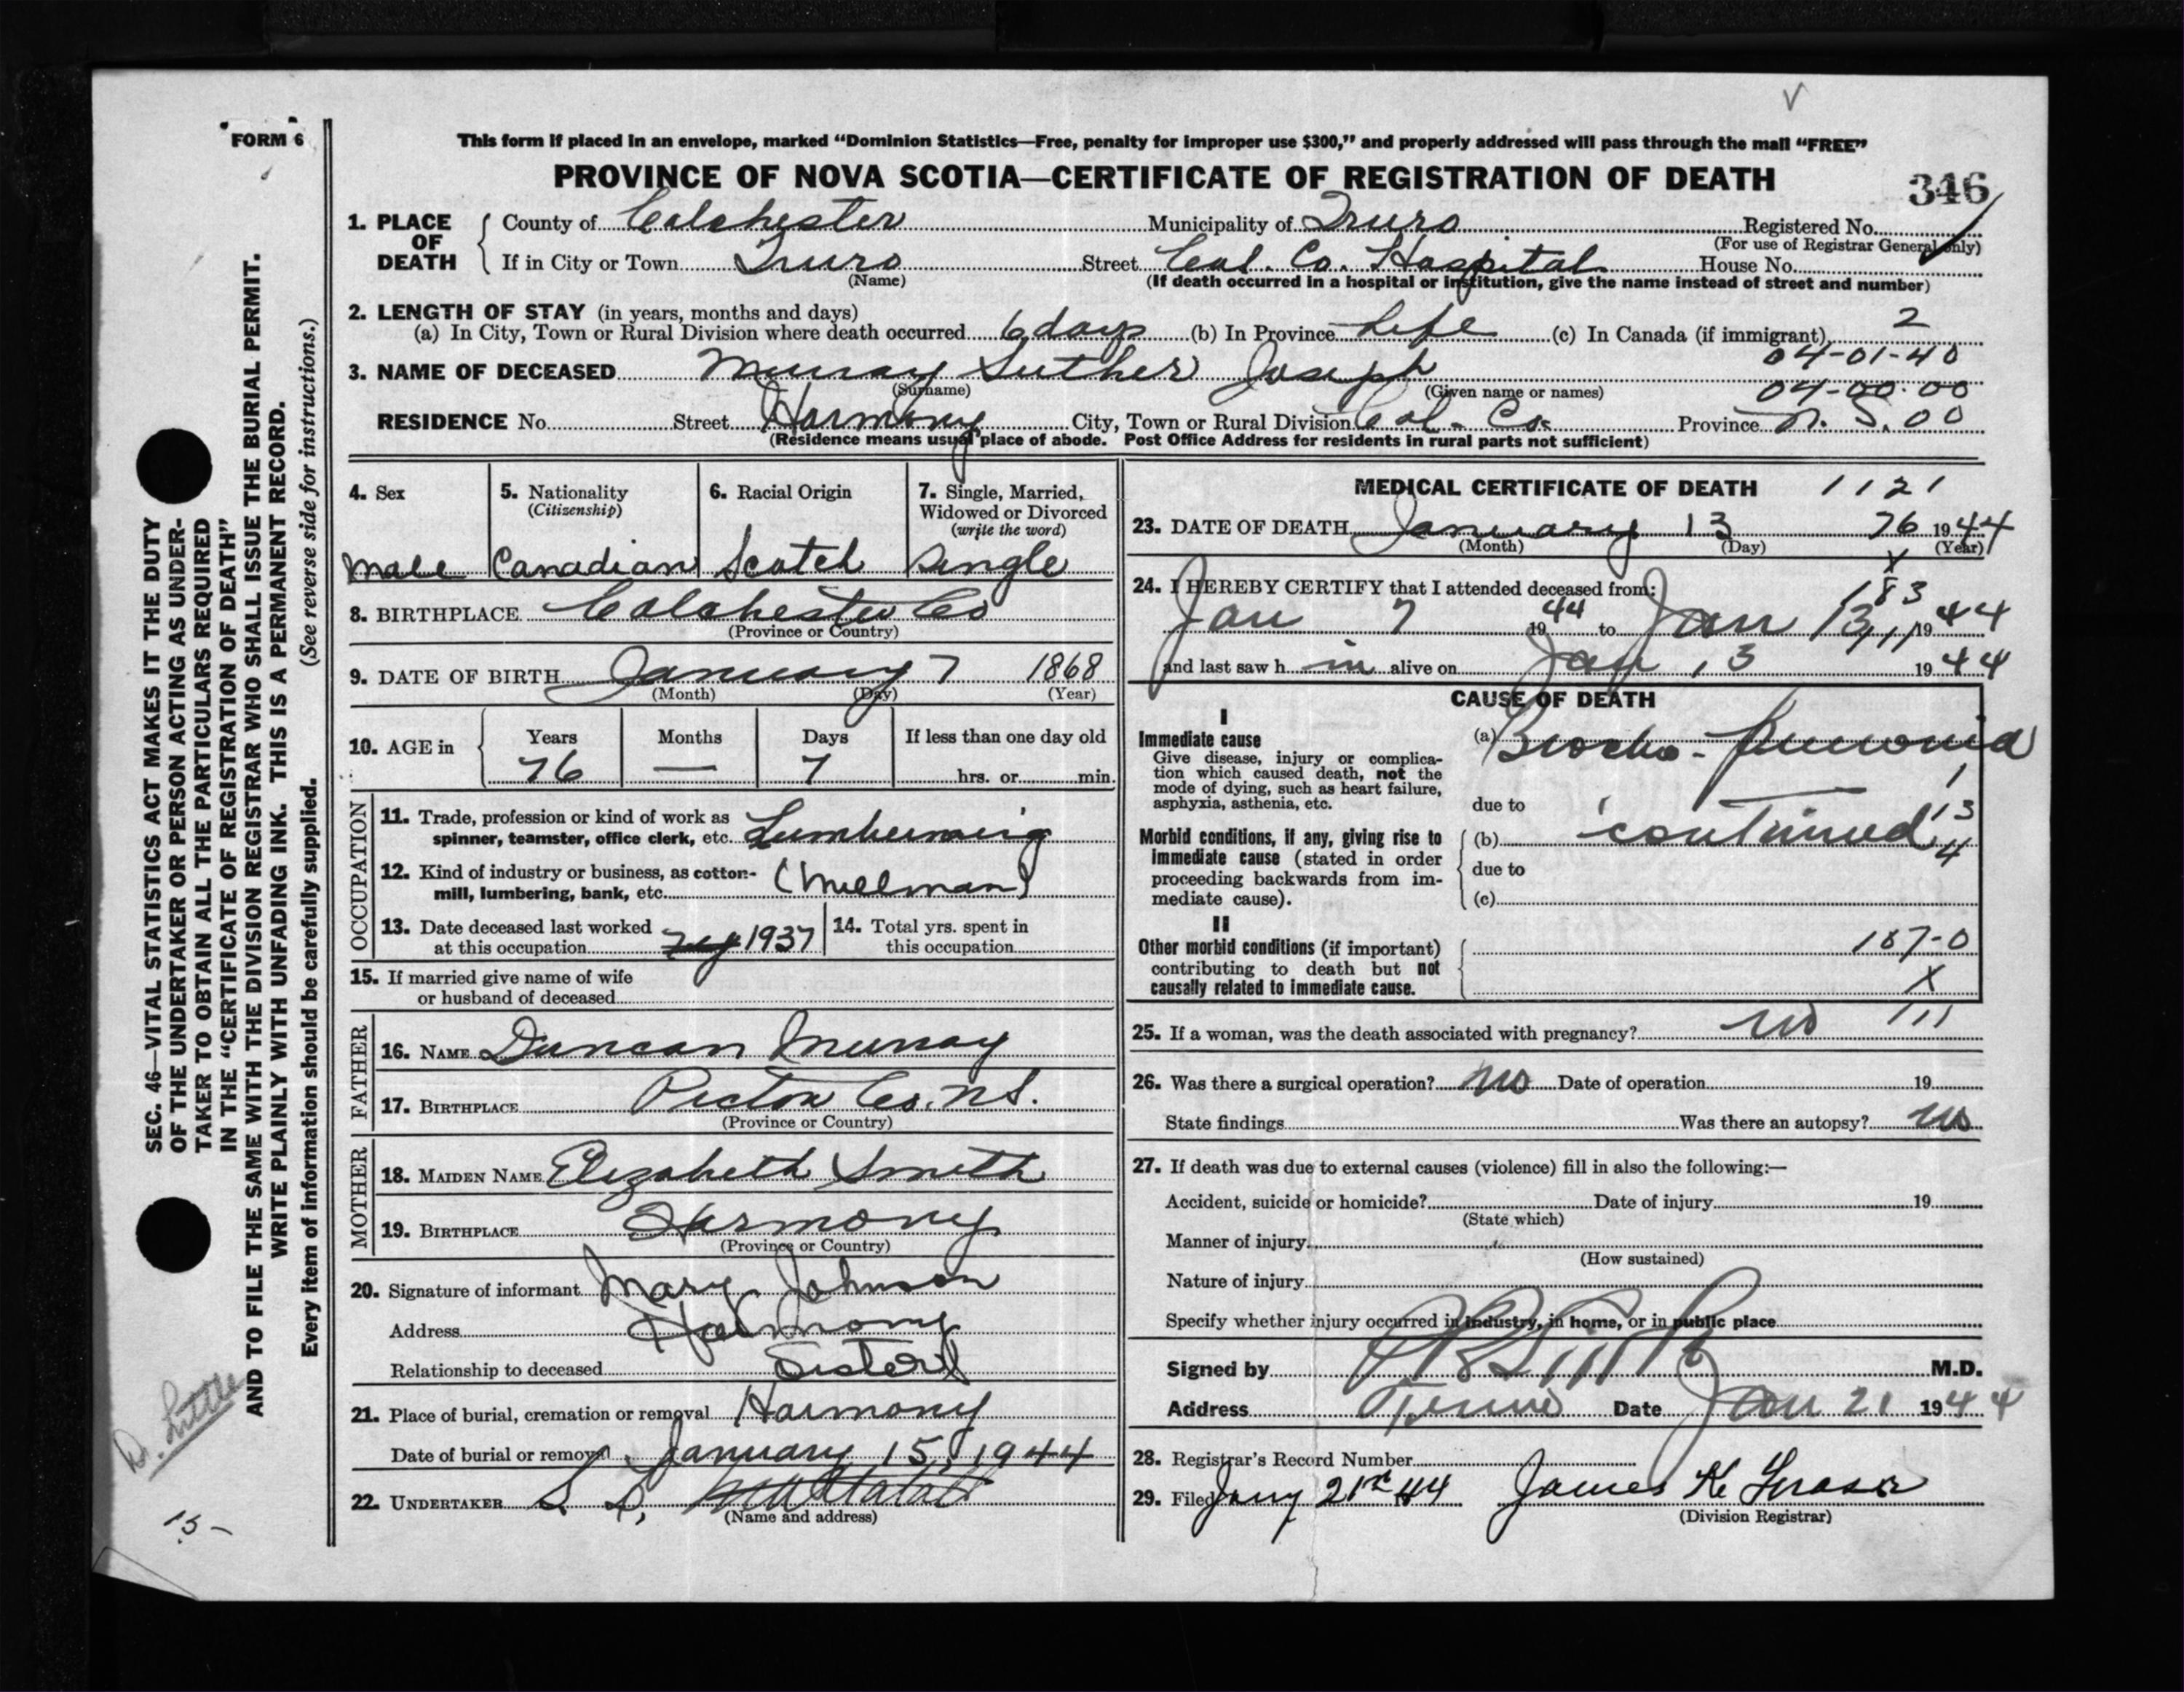 FORM 6
This form if placed in an envelope, marked “Dominion Statistics—Free, penalty for improper use $300,” and properly addressed will pass through the mail “FREE”
PROVINCE OF NOVA SCOTIA—CERTIFICATE OF REGISTRATION OF DEATH
346
1. PLACE OF DEATH
County of Colchester Municipality of Truro Registered No.
(For use of Registrar General only)
If in City or Town Truro Street Col. Co. Hospital House No.
(Name) (If death occurred in a hospital or institution, give the name instead of street and number)
2. LENGTH OF STAY (in years, months and days)
(a) In City, Town or Rural Division where death occurred 6 days (b) In Province Life (c) In Canada (if immigrant) 2
04-01-40
3. NAME OF DECEASED Murray Luther Joseph
(Surname) (Given name or names) 04-00-00
RESIDENCE No. Street Harmony City, Town or Rural Division Col. Co. Province N. S. 00
(Residence means usual place of abode. Post Office Address for residents in rural parts not sufficient)
4. Sex
male
5. Nationality
(Citizenship)
Canadian
6. Racial Origin
Scotch
7. Single, Married, Widowed or Divorced
(write the word)
Single
8. BIRTHPLACE Colchester Co
(Province or Country)
9. DATE OF BIRTH January 7 1868
(Month) (Day) (Year)
10. AGE in Years Months Days If less than one day old
76 — 7 hrs. or min.
OCCUPATION
11. Trade, profession or kind of work as
spinner, teamster, office clerk, etc. Lumbering
12. Kind of industry or business, as cotton-
mill, lumbering, bank, etc. (Millman)
13. Date deceased last worked
at this occupation 1937
14. Total yrs. spent in
this occupation
15. If married give name of wife
or husband of deceased
FATHER
16. NAME Duncan Murray
17. BIRTHPLACE Pictou Co. N.S.
(Province or Country)
MOTHER
18. MAIDEN NAME Elizabeth Smith
19. BIRTHPLACE Harmony
(Province or Country)
20. Signature of informant Mary Johnson
Address Harmony
Relationship to deceased Sister
21. Place of burial, cremation or removal Harmony
Date of burial or removal January 15, 1944
22. UNDERTAKER
(Name and address)
MEDICAL CERTIFICATE OF DEATH 1121
23. DATE OF DEATH January 13 76 1944
(Month) (Day) (Year)
X
24. I HEREBY CERTIFY that I attended deceased from:
183
Jan 7 1944 to Jan 13 1944
and last saw h im alive on Jan 13 1944
CAUSE OF DEATH
I
Immediate cause
Give disease, injury or complica-
tion which caused death, not the
mode of dying, such as heart failure,
asphyxia, asthenia, etc.
(a) Broncho-Pneumonia
due to
Morbid conditions, if any, giving rise to
immediate cause (stated in order
proceeding backwards from im-
mediate cause).
(b) continued
due to
(c)
1
13
4
II
Other morbid conditions (if important)
contributing to death but not
causally related to immediate cause.
107-0
X
25. If a woman, was the death associated with pregnancy? no 111
26. Was there a surgical operation? no Date of operation 19
State findings Was there an autopsy? no
27. If death was due to external causes (violence) fill in also the following:—
Accident, suicide or homicide? Date of injury 19
(State which)
Manner of injury
(How sustained)
Nature of injury
Specify whether injury occurred in industry, in home, or in public place
Signed by M.D.
Address Truro Date Jan 21 1944
28. Registrar's Record Number
29. Filed Jany 21st 44 James K
(Division Registrar)
SEC. 46—VITAL STATISTICS ACT MAKES IT THE DUTY
OF THE UNDERTAKER OR PERSON ACTING AS UNDER-
TAKER TO OBTAIN ALL THE PARTICULARS REQUIRED
IN THE “CERTIFICATE OF REGISTRATION OF DEATH”
AND TO FILE THE SAME WITH THE DIVISION REGISTRAR WHO SHALL ISSUE THE BURIAL PERMIT.
WRITE PLAINLY WITH UNFADING INK. THIS IS A PERMANENT RECORD.
Every item of information should be carefully supplied. (See reverse side for instructions.)
Dr. Little
15-